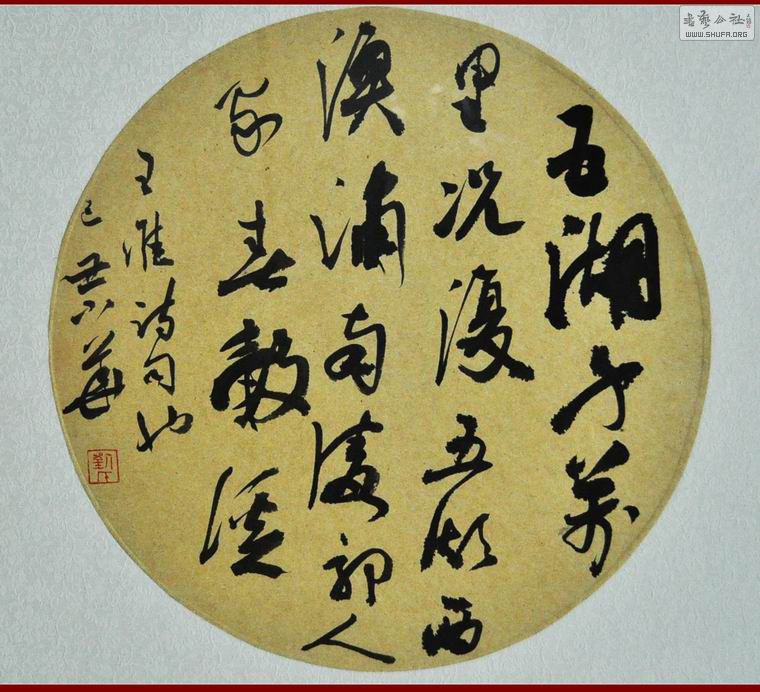 五湖千萬
里况復五湖西
漁浦南陵郭人
家春穀溪
王維诗句也
己丑華
劉氏
書藝公社
WWW.SHUFA.ORG